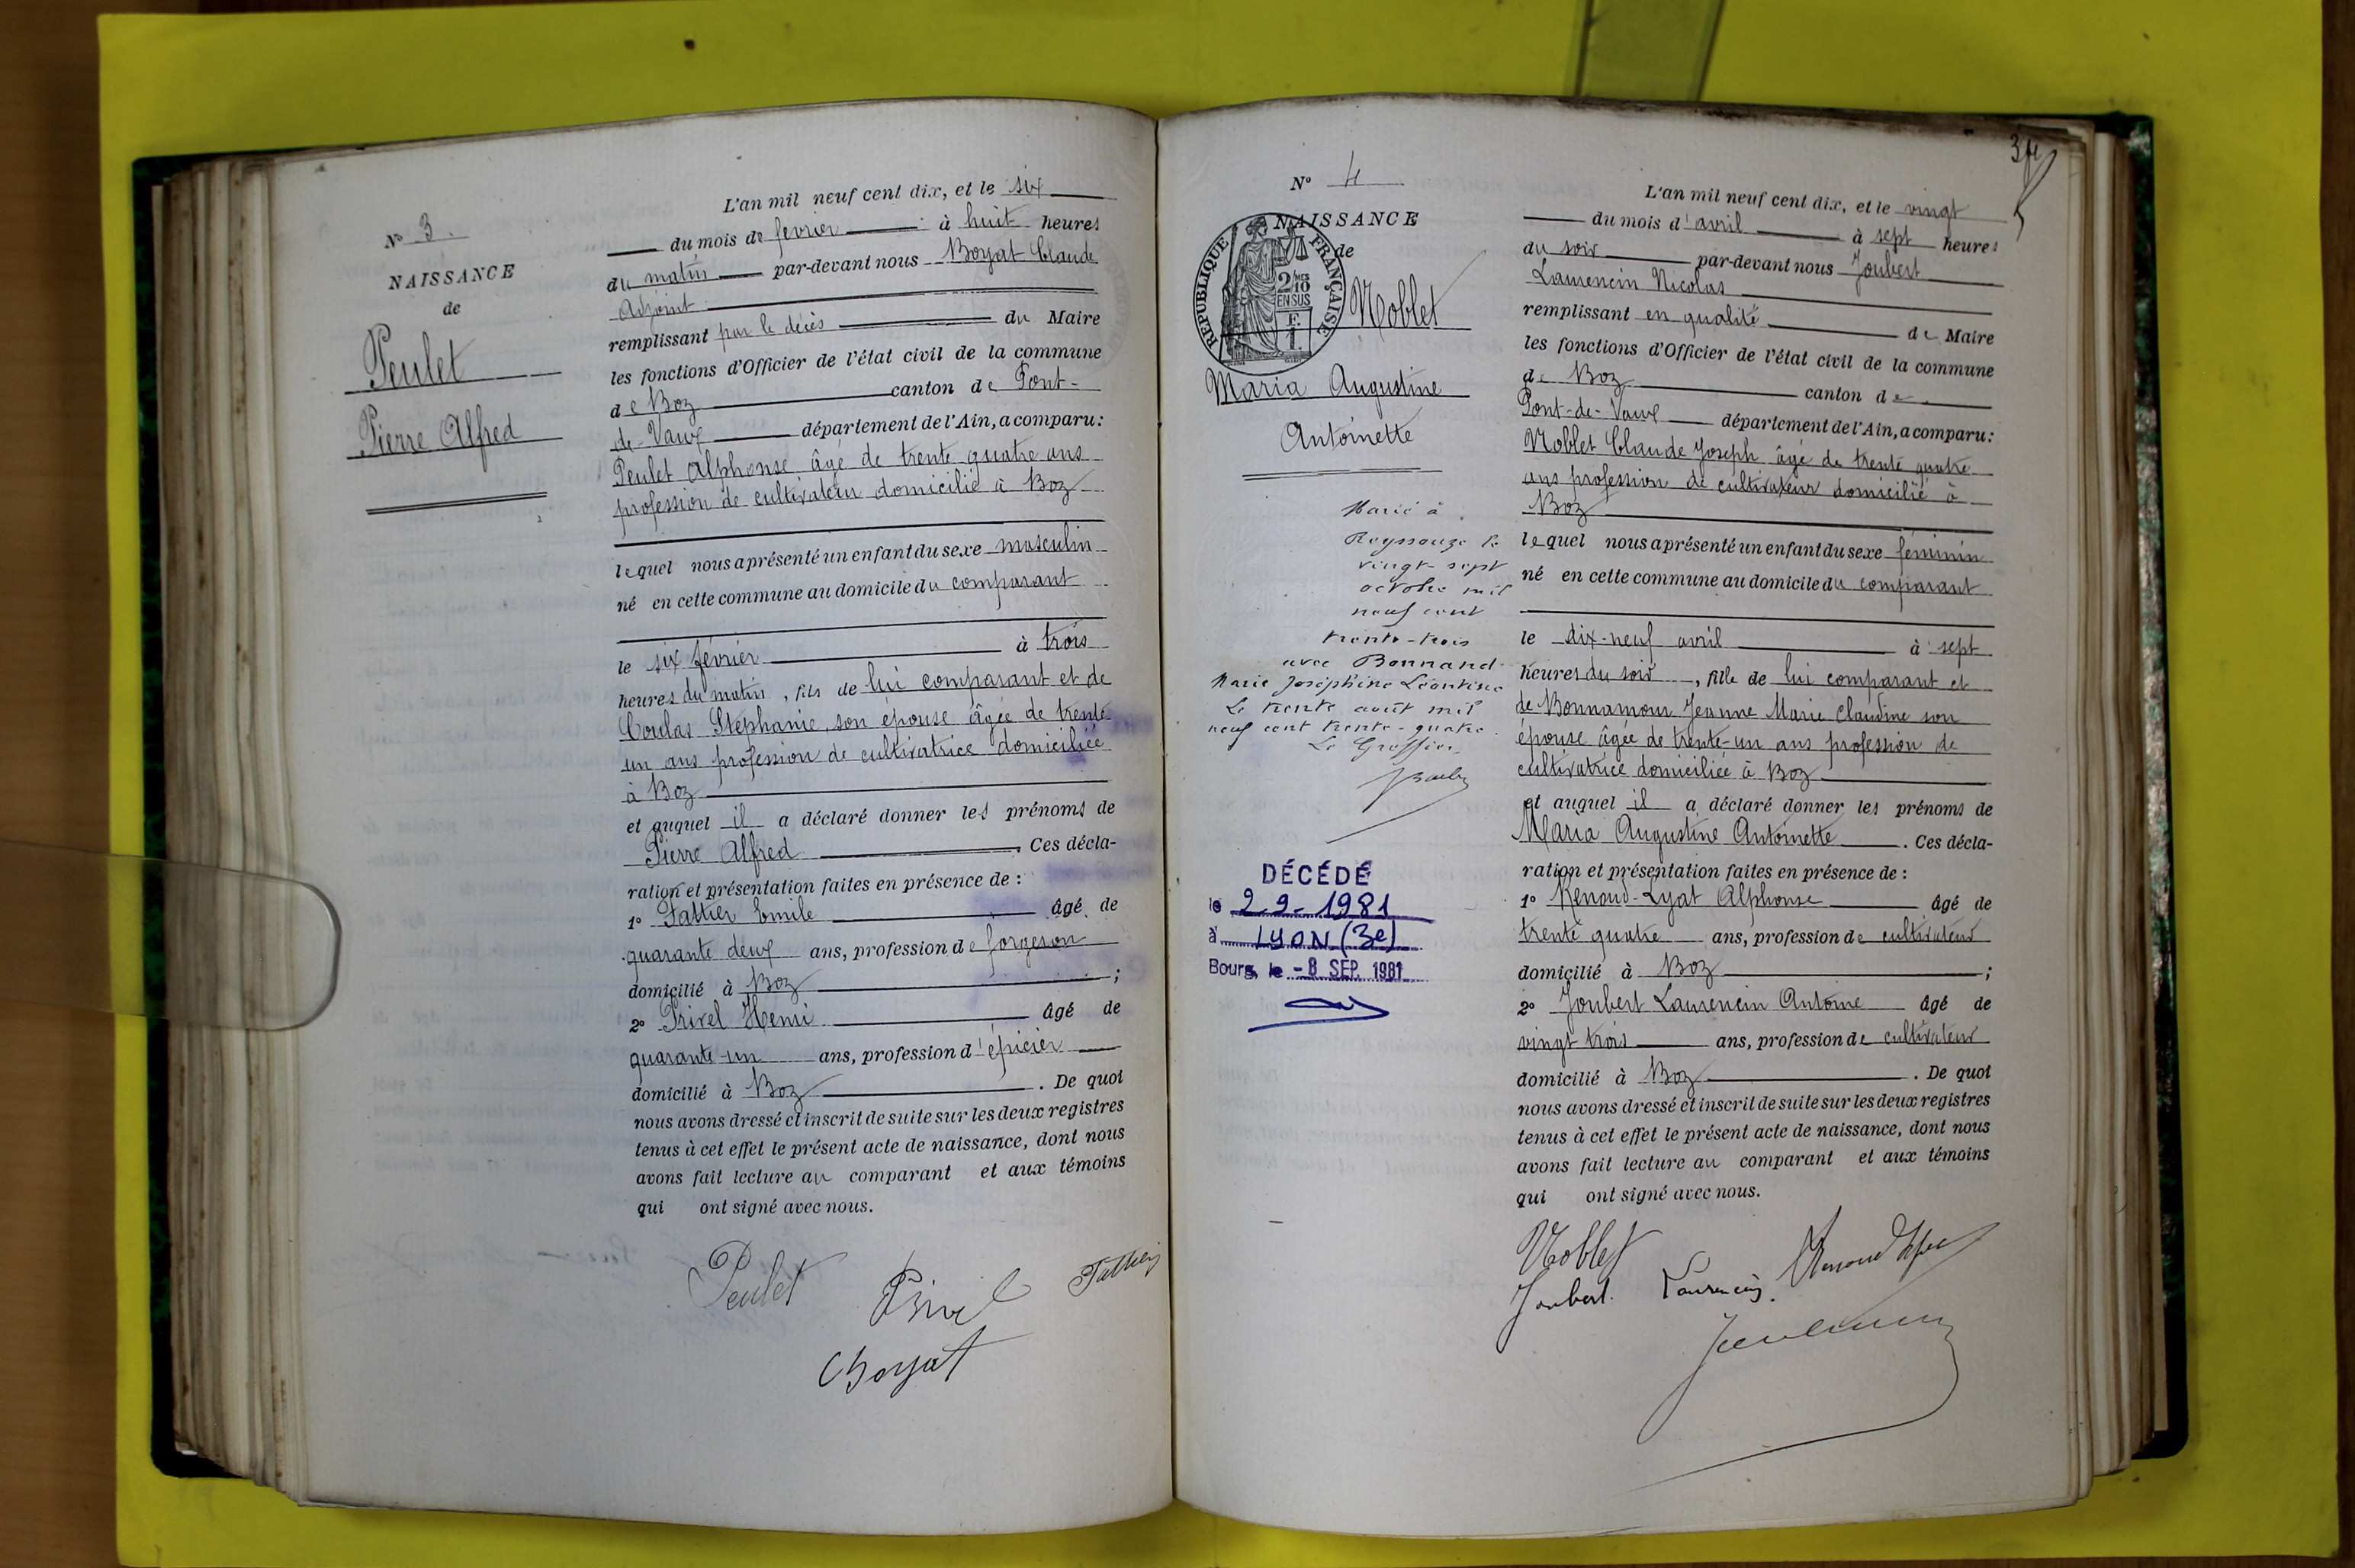 N° 3.
NAISSANCE
de
Peulet
Pierre Alfred
L'an mil neuf cent dix, et le six
du mois de février à huit heures
du matin par-devant nous Boyat Claude
Adjoint
remplissant par le décès du Maire
les fonctions d'Officier de l'état civil de la commune
de Boz canton de Pont-
de-Vaux département de l'Ain, a comparu:
Peulet Alphonse âgé de trente quatre ans
profession de cultivateur domicilié à Boz
lequel nous a présenté un enfant du sexe masculin
né en cette commune au domicile du comparant
le six février à trois
heures du matin, fils de lui comparant et de
Coulas Stéphanie son épouse âgée de trente
un ans profession de cultivatrice domiciliée
à Boz
et auquel il a déclaré donner les prénoms de
Pierre Alfred. Ces décla-
ration et présentation faites en présence de :
1° Tattier Emile âgé de
quarante deux ans, profession de forgeron
domicilié à Boz ;
2° Privel Henri âgé de
quarante-un ans, profession d'épicier
domicilié à Boz. De quoi
nous avons dressé et inscrit de suite sur les deux registres
tenus à cet effet le présent acte de naissance, dont nous
avons fait lecture au comparant et aux témoins
qui ont signé avec nous.
Peulet Privel
Boyat
34
N° 4
NAISSANCE
de
REPUBLIQUE FRANÇAISE
2/10 EN SUS
F. 1.
Noblet
Maria Augustine
Antoinette
Marié à
Reyssouze le
vingt-sept
octobre mil
neuf cent
trente-trois
avec Bonnand
Marie Joséphine Léontine
Le trente août mil
neuf cent trente-quatre.
Le Greffier
DÉCÉDÉ
le 2-9-1981
à LYON (3e)
Bourg, le -8 SEP. 1981
L'an mil neuf cent dix, et le vingt
du mois d'avril à sept heures
du soir par-devant nous Joubert
Laurencin Nicolas
remplissant en qualité de Maire
les fonctions d'Officier de l'état civil de la commune
de Boz canton de
Pont-de-Vaux département de l'Ain, a comparu:
Noblet Claude Joseph âgé de trente quatre
ans profession de cultivateur domicilié à
Boz
lequel nous a présenté un enfant du sexe féminin
né en cette commune au domicile du comparant
le dix-neuf avril à sept
heures du soir, fille de lui comparant et
de Bonnamour Jeanne Marie Claudine son
épouse âgée de trente-un ans profession de
cultivatrice domiciliée à Boz
et auquel il a déclaré donner les prénoms de
Maria Augustine Antoinette. Ces décla-
ration et présentation faites en présence de :
1° Renoud-Lyat Alphonse âgé de
trente quatre ans, profession de cultivateur
domicilié à Boz ;
2° Joubert Laurencin Antoine âgé de
vingt trois ans, profession de cultivateur
domicilié à Boz. De quoi
nous avons dressé et inscrit de suite sur les deux registres
tenus à cet effet le présent acte de naissance, dont nous
avons fait lecture au comparant et aux témoins
qui ont signé avec nous.
Noblet
Joubert Laurencin